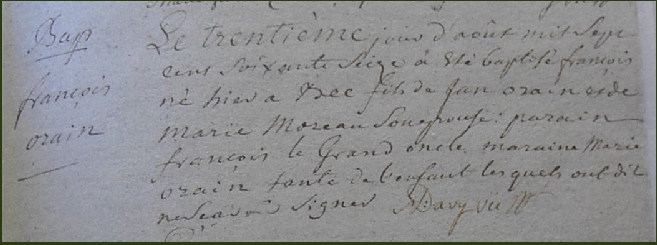 Bap
françois
orain
Le trentième jour d'août mil Sept
cent Soixante Seize à été baptisé françois
né hier a fils de Jan orain et de
marie Moreau Son epouse: parain
françois le Grand oncle maraine Marie
orain tante de l'enfant lesquels ont dit
ne Scavoir Signer